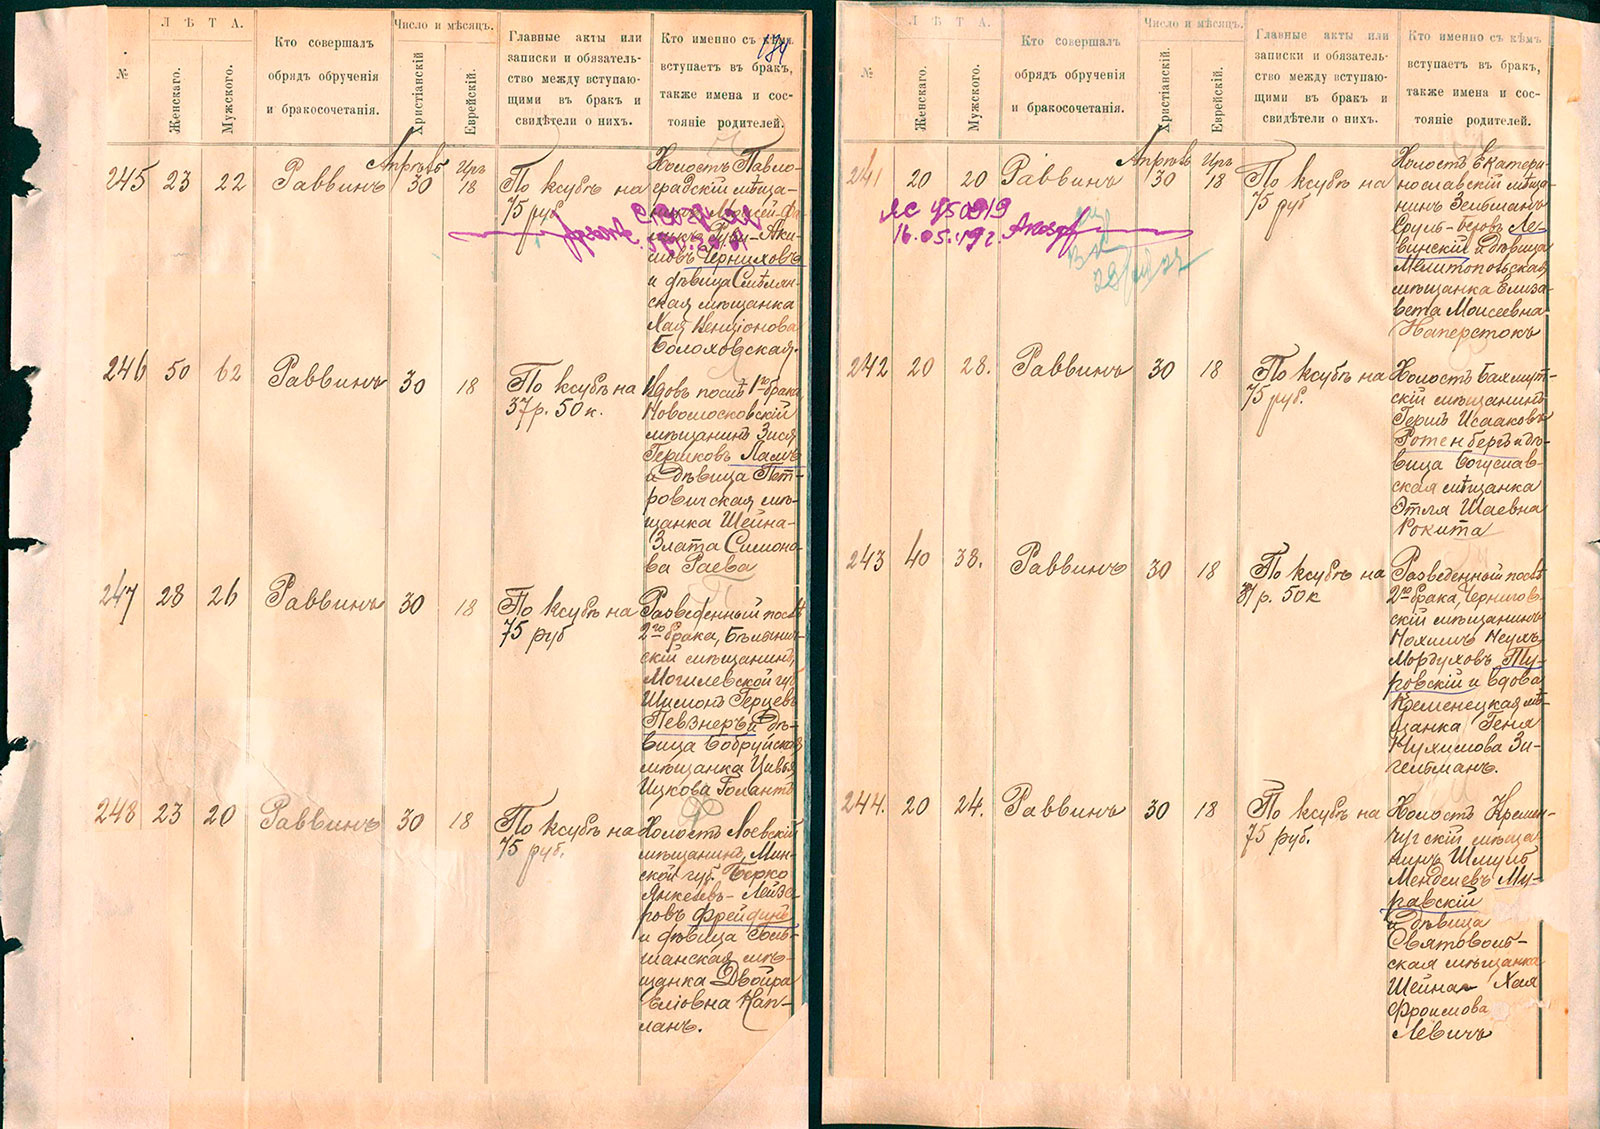 №
ЛѢТА.
Женскаго.
Мужского.
Кто совершалъ
обрядъ обрученія
и бракосочетанія.
Число и мѣсяцъ.
Христіанскій
Еврейскій.
Главные акты или
записки и обязатель-
ство между вступаю-
щими въ бракъ и
свидѣтели о нихъ.
Кто именно съ кѣмъ
вступаетъ въ бракъ,
также имена и сос-
тояніе родителей.
184
245 23 22 Раввинъ Апрѣль 30 Иръ 18
По ксубѣ на
75 руб
Холостъ Павло-
градскій мѣща-
нинъ Мовсей-Фа-
Акі-
мовъ Черниховъ
и дѣвица Смѣлян-
ская мѣщанка
Хая Бенціонова
Болоховская.
246 50 62 Раввинъ 30 18
По ксубѣ на
37 р. 50 к.
Вдовъ послѣ 1го брака
Новомосковскій
мѣщанинъ Зися
Гершковъ Ламъ
и дѣвица Пет-
ровичская мѣ-
щанка Шейна-
Злата Симоно-
ва Раева
247 28 26 Раввинъ 30 18
По ксубѣ на
75 руб
Разведенный послѣ
2го брака, Бѣлыни-
скій мѣщанинъ,
Могилевской губ
Шимонъ Герцевъ
Певзнеръ и дѣ-
вица Бобруйская
мѣщанка Цивья
Ицкова Голантъ
248 23 20 Раввинъ 30 18
По ксубѣ на
75 руб.
Холостъ Лоевскій
мѣщанинъ, Мин-
ской губ. Берко
Янкелевъ-Лейзе-
ровъ Фрейдинъ
и дѣвица Голь-
шанская мѣ-
щанка Двойра
Еліовна Кап-
ланъ.
№
ЛѢТА.
Женскаго.
Мужского.
Кто совершалъ
обрядъ обрученія
и бракосочетанія.
Число и мѣсяцъ.
Христіанскій
Еврейскій.
Главные акты или
записки и обязатель-
ство между вступаю-
щими въ бракъ и
свидѣтели о нихъ.
Кто именно съ кѣмъ
вступаетъ въ бракъ,
также имена и сос-
тояніе родителей.
241 20 20 Раввинъ Апрѣль 30 Иръ 18
По ксубѣ на
75 руб
ЯС 450919
16.05.49г.
Холостъ Екатери-
нославскій мѣща-
нинъ Зельманъ
Сруль-Беровъ Ле-
винскій и дѣвица
Мелитопольская
мѣщанка Елиза-
вета Моисеевна
Наперстокъ
242 20 28. Раввинъ 30 18
По ксубѣ на
75 руб.
Холостъ Бахмут-
скій мѣщанинъ
Гершъ Исааковъ
Ротенбергъ и дѣ-
вица Богуслав-
ская мѣщанка
Этля Шаевна
Рокита
243 40 38. Раввинъ 30 18
По ксубѣ на
37 р. 50 к
Разведенный послѣ
2го брака, Чернигов-
скій мѣщанинъ
Нохимъ Неухъ
Мордуховъ Ту-
ровскій и вдова
Кременецкая мѣ-
щанка Геня
Нухимова Зи-
гельманъ.
244. 20 24. Раввинъ 30 18
По ксубѣ на
75 руб.
Холостъ Кремен-
чугскій мѣща
нинъ Шмуль
Менделевъ Му-
равскій
и дѣвица
Святополь-
ская мѣщанка
Шейна Хая
Фроимова
Левичъ